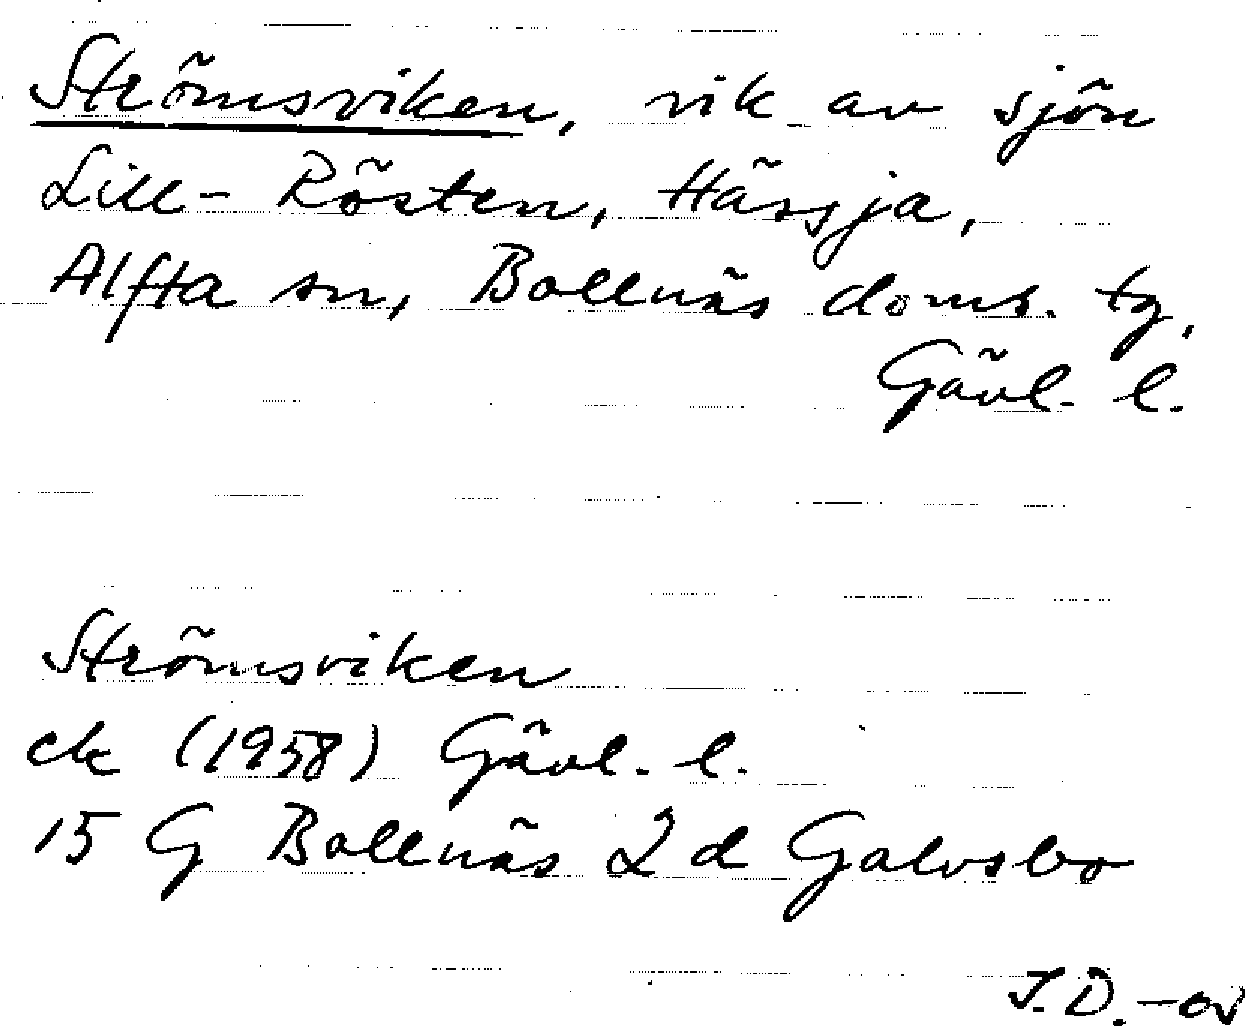 Strömsviken, vik av sjön
Lill-Rösten, Hässja,
Alfta sn, Bollnäs doms. tg,
Gävl. l.
Strömsviken
ek (1958) Gävl. l.
15 G Bollnäs 2 d Galvsbo
J.D.-ov